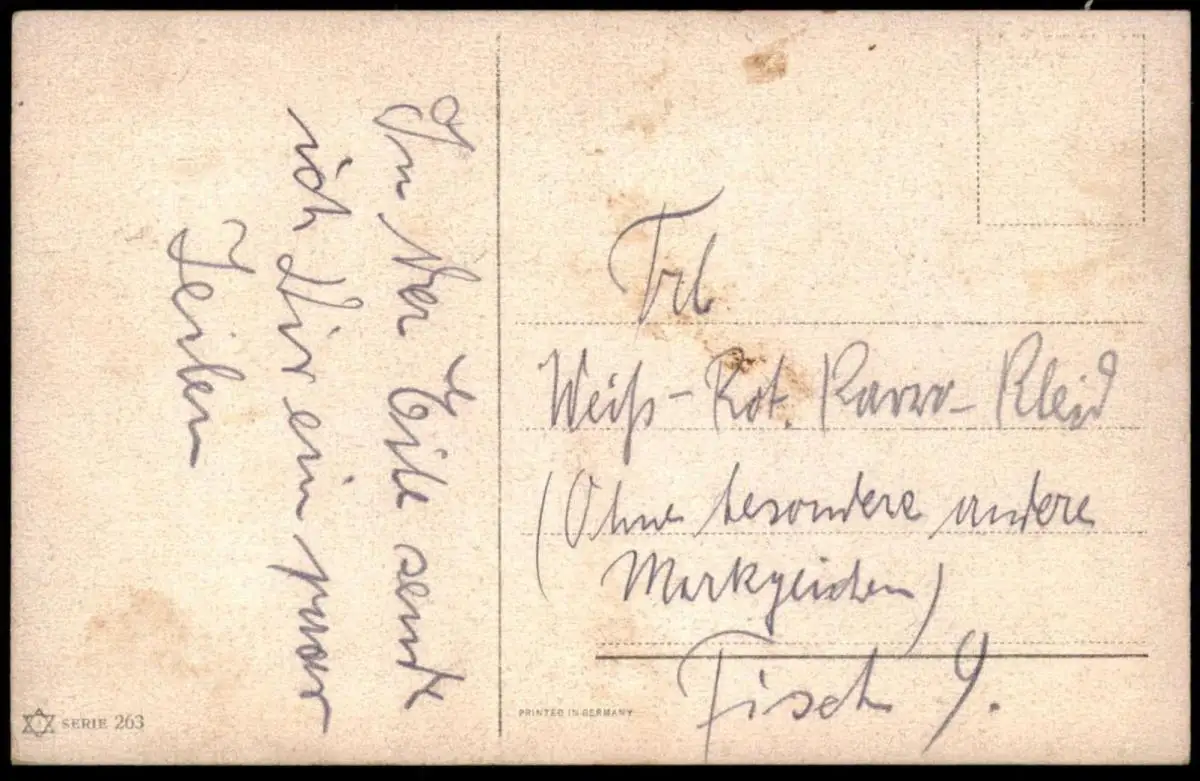 In der Eile sende
ich Dir ein paar
Zeilen
Frl.
Weiß-Rot. Karro-Kleid
(Ohne besondere andere
Merkzeichen)
Tisch 9.
SERIE 263
PRINTED IN GERMANY